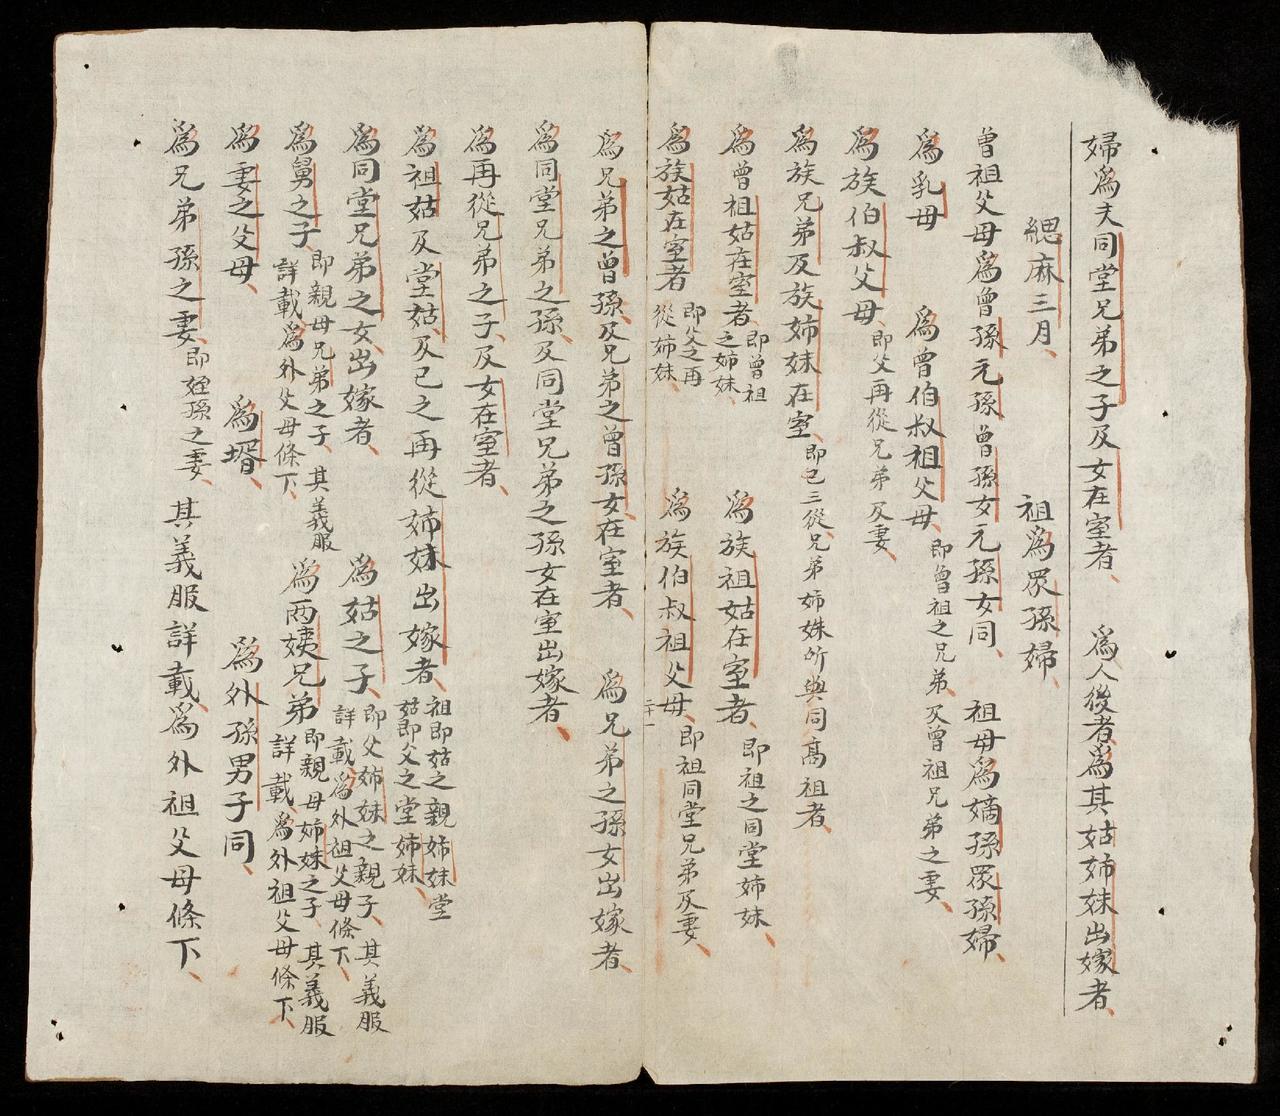 婦為夫同堂兄弟之子及女在室者、為人後者為其姑姉妹出嫁者、
緦麻三月、祖為眾孫婦、
曽祖父母為曽孫元孫曽孫女元孫女同、祖母為嫡孫眾孫婦、
為乳母 為曽伯叔祖父母、即曽祖之兄弟及曽祖兄弟之妻、
為族伯叔父母、即父再從兄弟及妻、
為族兄弟及族姉妹在室、即己三從兄弟姉妹所與同髙祖者、
為曽祖姑在室者、即曽祖之姉妹、 為族祖姑在室者、即祖之同堂姉妹、
為族姑在室者 即父之再從姉妹、 為族伯叔祖父母、即祖同堂兄弟及妻、
為兄弟之曽孫及兄弟之曽孫女在室者、 為兄弟之孫女出嫁者、
為同堂兄弟之孫及同堂兄弟之孫女在室出嫁者、
為再從兄弟之子及女在室者、
為祖姑及堂姑、及己之再從姉妹出嫁者、祖即姑之親姉妹堂姑即父之堂姉妹、
為同堂兄弟之女出嫁者、 為姑之子、即父姉妹之親子、其義服詳載為外祖父母條下、
為舅之子、即親母兄弟之子、其義服詳載為外父母條下、 為兩姨兄弟即親母姉妹之子、其義服詳載為外祖父母條下、
為妻之父母、 為壻、 為外孫男子同、
為兄弟孫之妻、即姪孫之妻、其義服詳載為外祖父母條下、